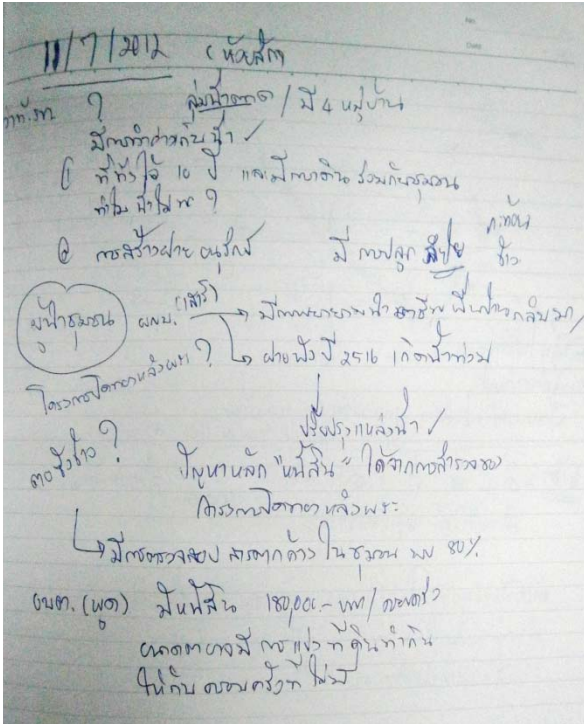 11/7/2012 (ห้วยสัก)
? ลุ่มน้ำตาด / มี 4 หมู่บ้าน
มีการทำค่ายกับน้ำ ✓
① ที่ทิ้งไว้ 10 ปี และมี ร่วมกับชุมชน
ทำไม น้ำไม่ ?
② การสร้างฝาย อนุรักษ์ มี การปลูก ข้าว
ผู้นำชุมชน ผญบ. (เสรี) → มีความพยายามนำ อาชีพ พื้นบ้าน กลับมา /
? ↳ ฝายพังปี 2516 เกิดน้ำท่วม
โครงการปิดทองหลังพระ
ปรับปรุงแหล่งน้ำ ✓
?
ปัญหาหลัก "หนี้สิน" ได้จากการสำรวจของ
โครงการปิดทองหลังพระ
↳ มีการตรวจสอบ สารตกค้าง ในชุมชน พบ 80%
อบต. (พูด) มีหนี้สิน 180,000.- บาท / ครอบครัว
อนาคตอาจมี การแบ่ง ที่ดินทำกิน
ให้กับ ครอบครัวที่ ไม่มี